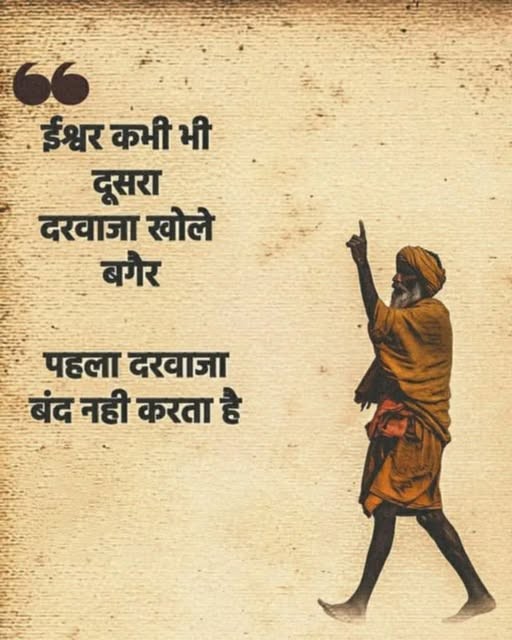 ईश्वर कभी भी
दूसरा
दरवाजा खोले
बगैर
पहला दरवाजा
बंद नही करता है